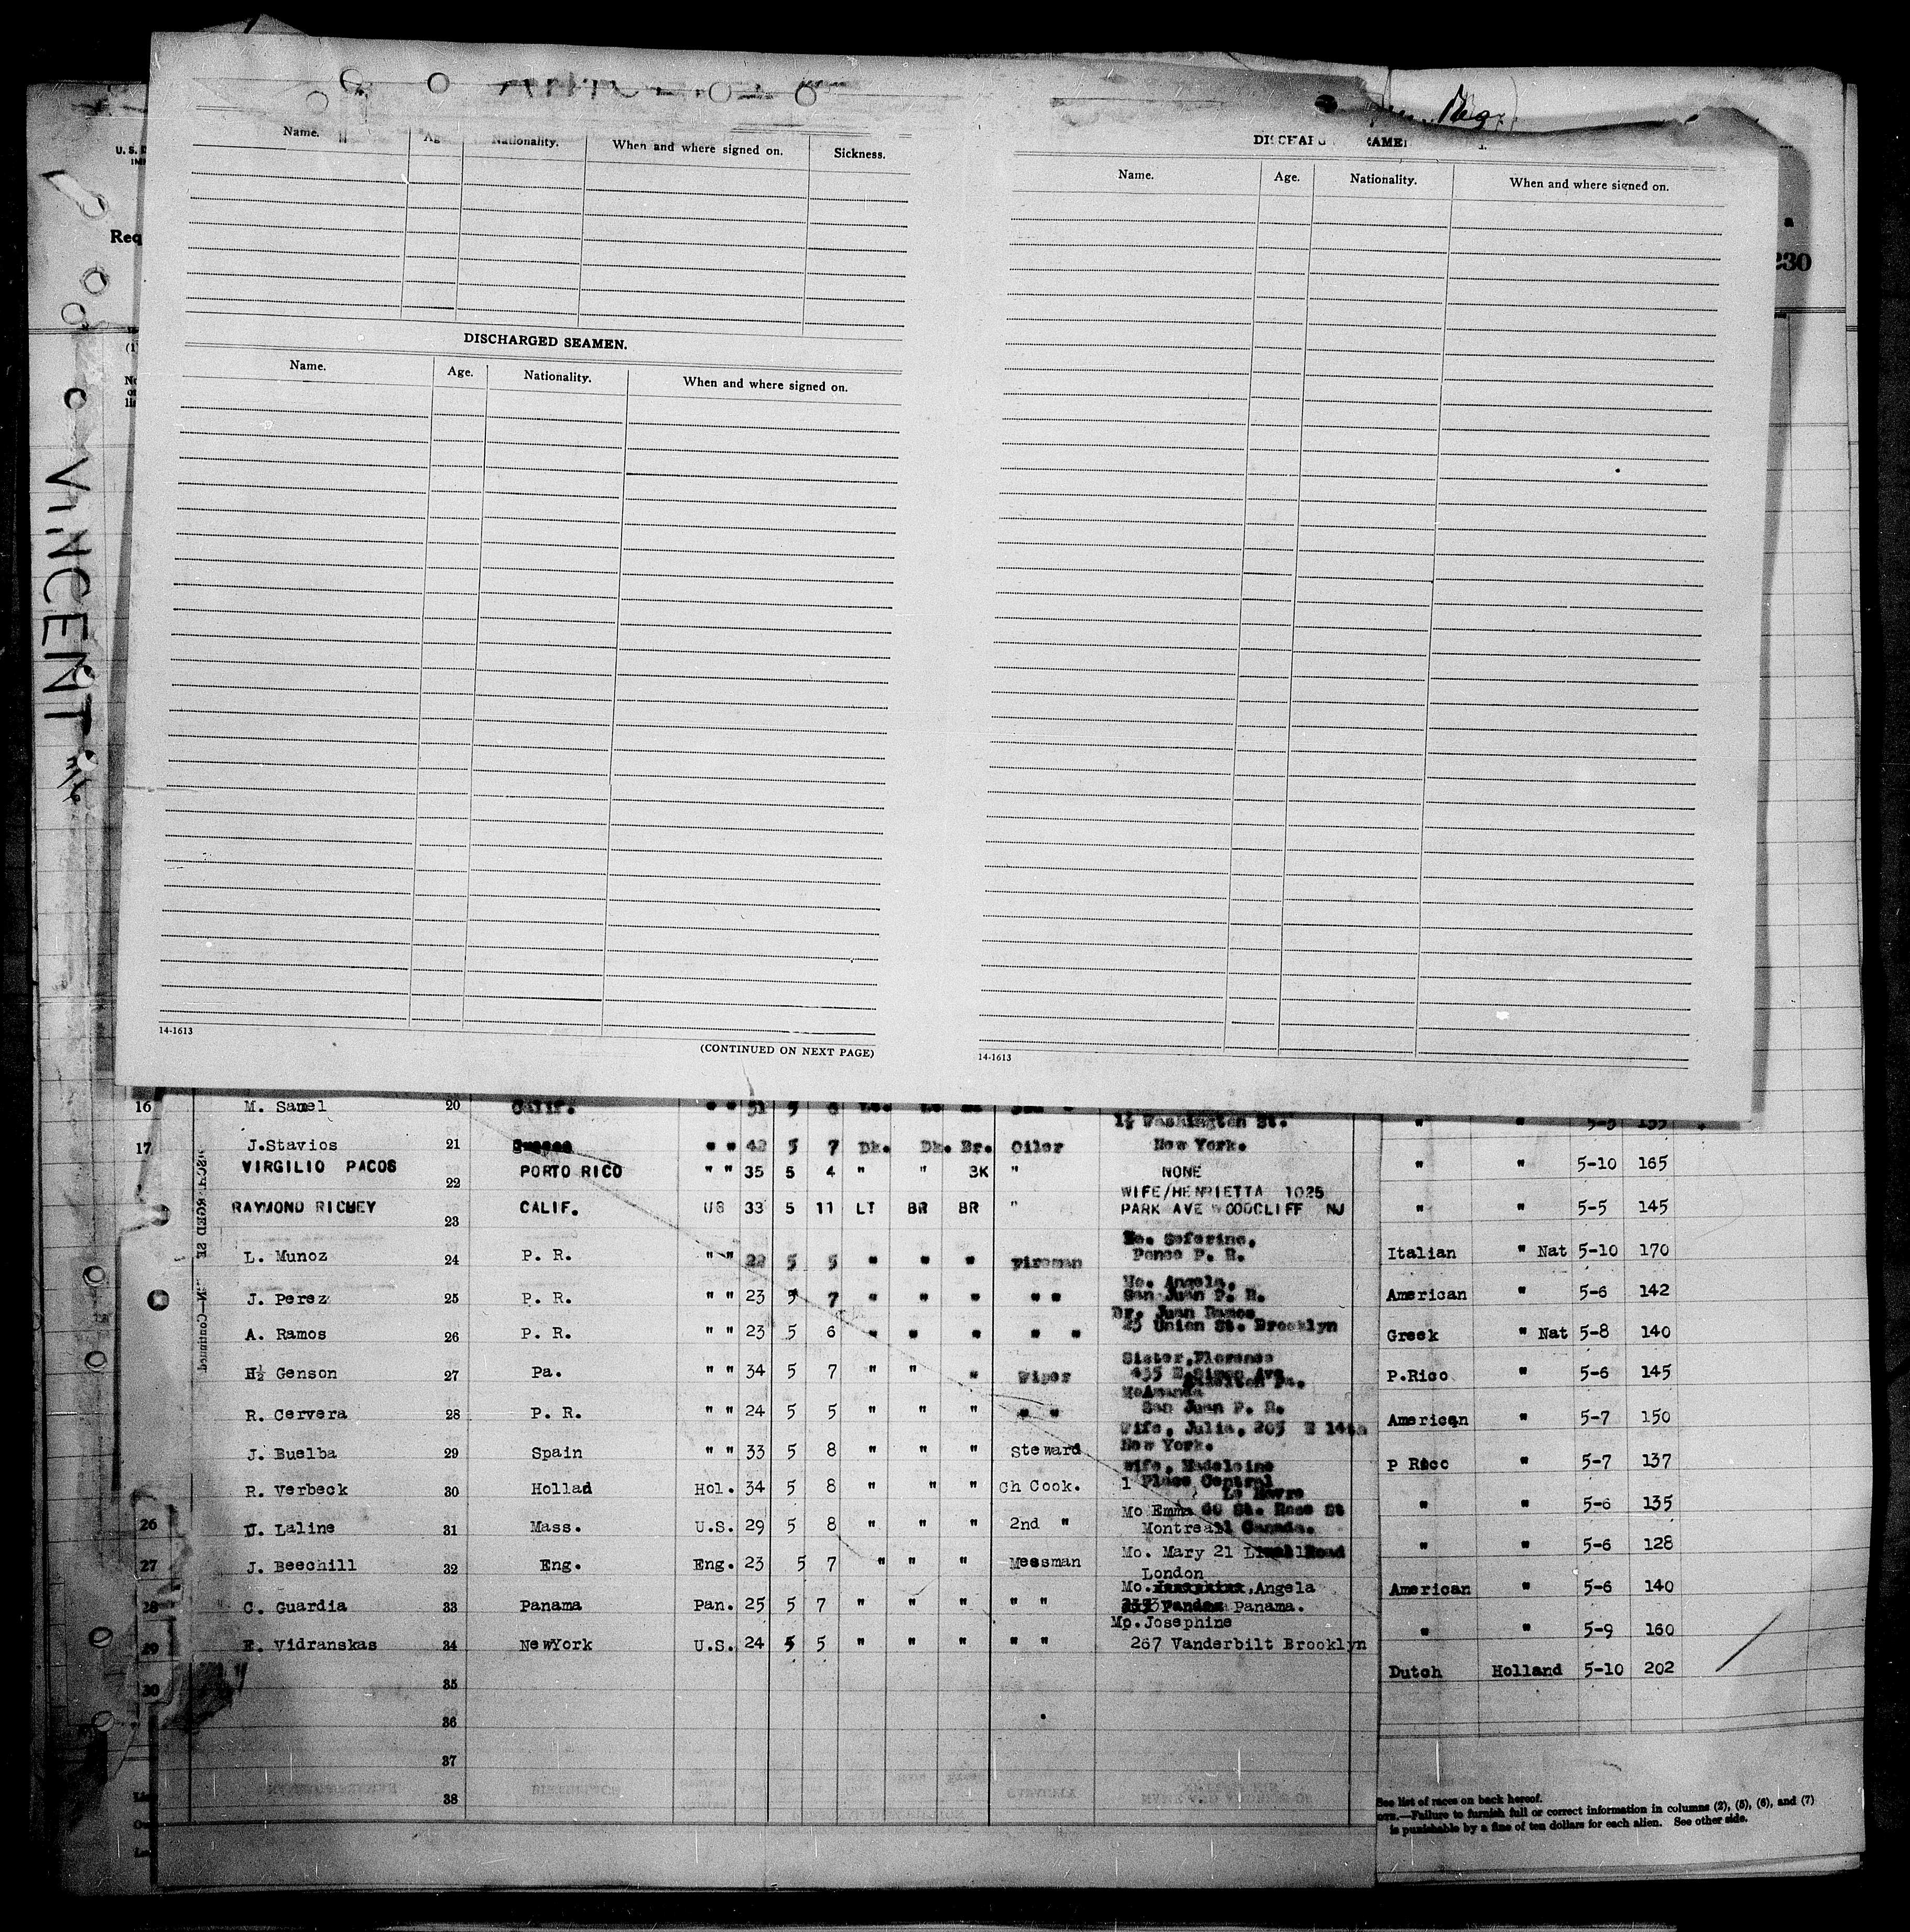 U. S. D
Req
VINCENT
Name.
Nationality.
When and where signed on.
Sickness.
DISCHARGED SEAMEN.
Name. Age. Nationality. When and where signed on.
14-1613
(CONTINUED ON NEXT PAGE)
Name. Age. Nationality. When and where signed on.
14-1613
230
16 M. Samel 20 Calif. " "
1½ Washington St.
17 J.Stavios 21 " " 42 5 7 Dk. Dk. Br. Oiler New York.
VIRGILIO PACOS 22 PORTO RICO " " 35 5 4 " " BK " NONE
WIFE/HENRIETTA 1025
RAYMOND RICHEY 23 CALIF. US 33 5 11 LT BR BR " PARK AVE WOODCLIFF NJ
L. Munoz 24 P. R. " " 22 5 5 " " " Fireman Ponce P. R.
Mo. Angela.
J. Perez 25 P. R. " " 23 5 7 " " " " " San Juan P. R.
Dr. Juan Ramos
A. Ramos 26 P. R. " " 23 5 6 " " " " " 23 Union St. Brooklyn
Sister,Florence
H½ Genson 27 Pa. " " 34 5 7 " " " Wiper
R. Cervera 28 P. R. " " 24 5 5 " " " " " San Juan P. R.
Wife, Julia, 203 E 14th
J. Buelba 29 Spain " " 33 5 8 " " " Steward New York.
Wife, Madeleine
R. Verbeck 30 Hollad Hol. 34 5 8 " " " Ch Cook. 1 Place Central
Le Havre
Mo Emma 60 St. Rose St
26 U. Laline 31 Mass. U.S. 29 5 8 " " " 2nd " Montreall Canada.
Mo. Mary 21
27 J. Beechill 32 Eng. Eng. 23 5 7 " " " Messman London
Mo. ,Angela
28 C. Guardia 33 Panama Pan. 25 5 7 " " " " " Panama.
Mo. Josephine
29 E. Vidranskas 34 NewYork U.S. 24 5 5 " " " " " 267 Vanderbilt Brooklyn
30 35
36
37
38
" " 5-5 155
" " 5-10 165
" " 5-5 145
Italian " Nat 5-10 170
American " 5-6 142
Greek " Nat 5-8 140
P.Rico " 5-6 145
American " 5-7 150
P Rico " 5-7 137
" " 5-6 135
" " 5-6 128
American " 5-6 140
" " 5-9 160
Dutch Holland 5-10 202
See list of races on back hereof.
—Failure to furnish full or correct information in columns (2), (5), (6), and (7)
is punishable by a fine of ten dollars for each alien. See other side.